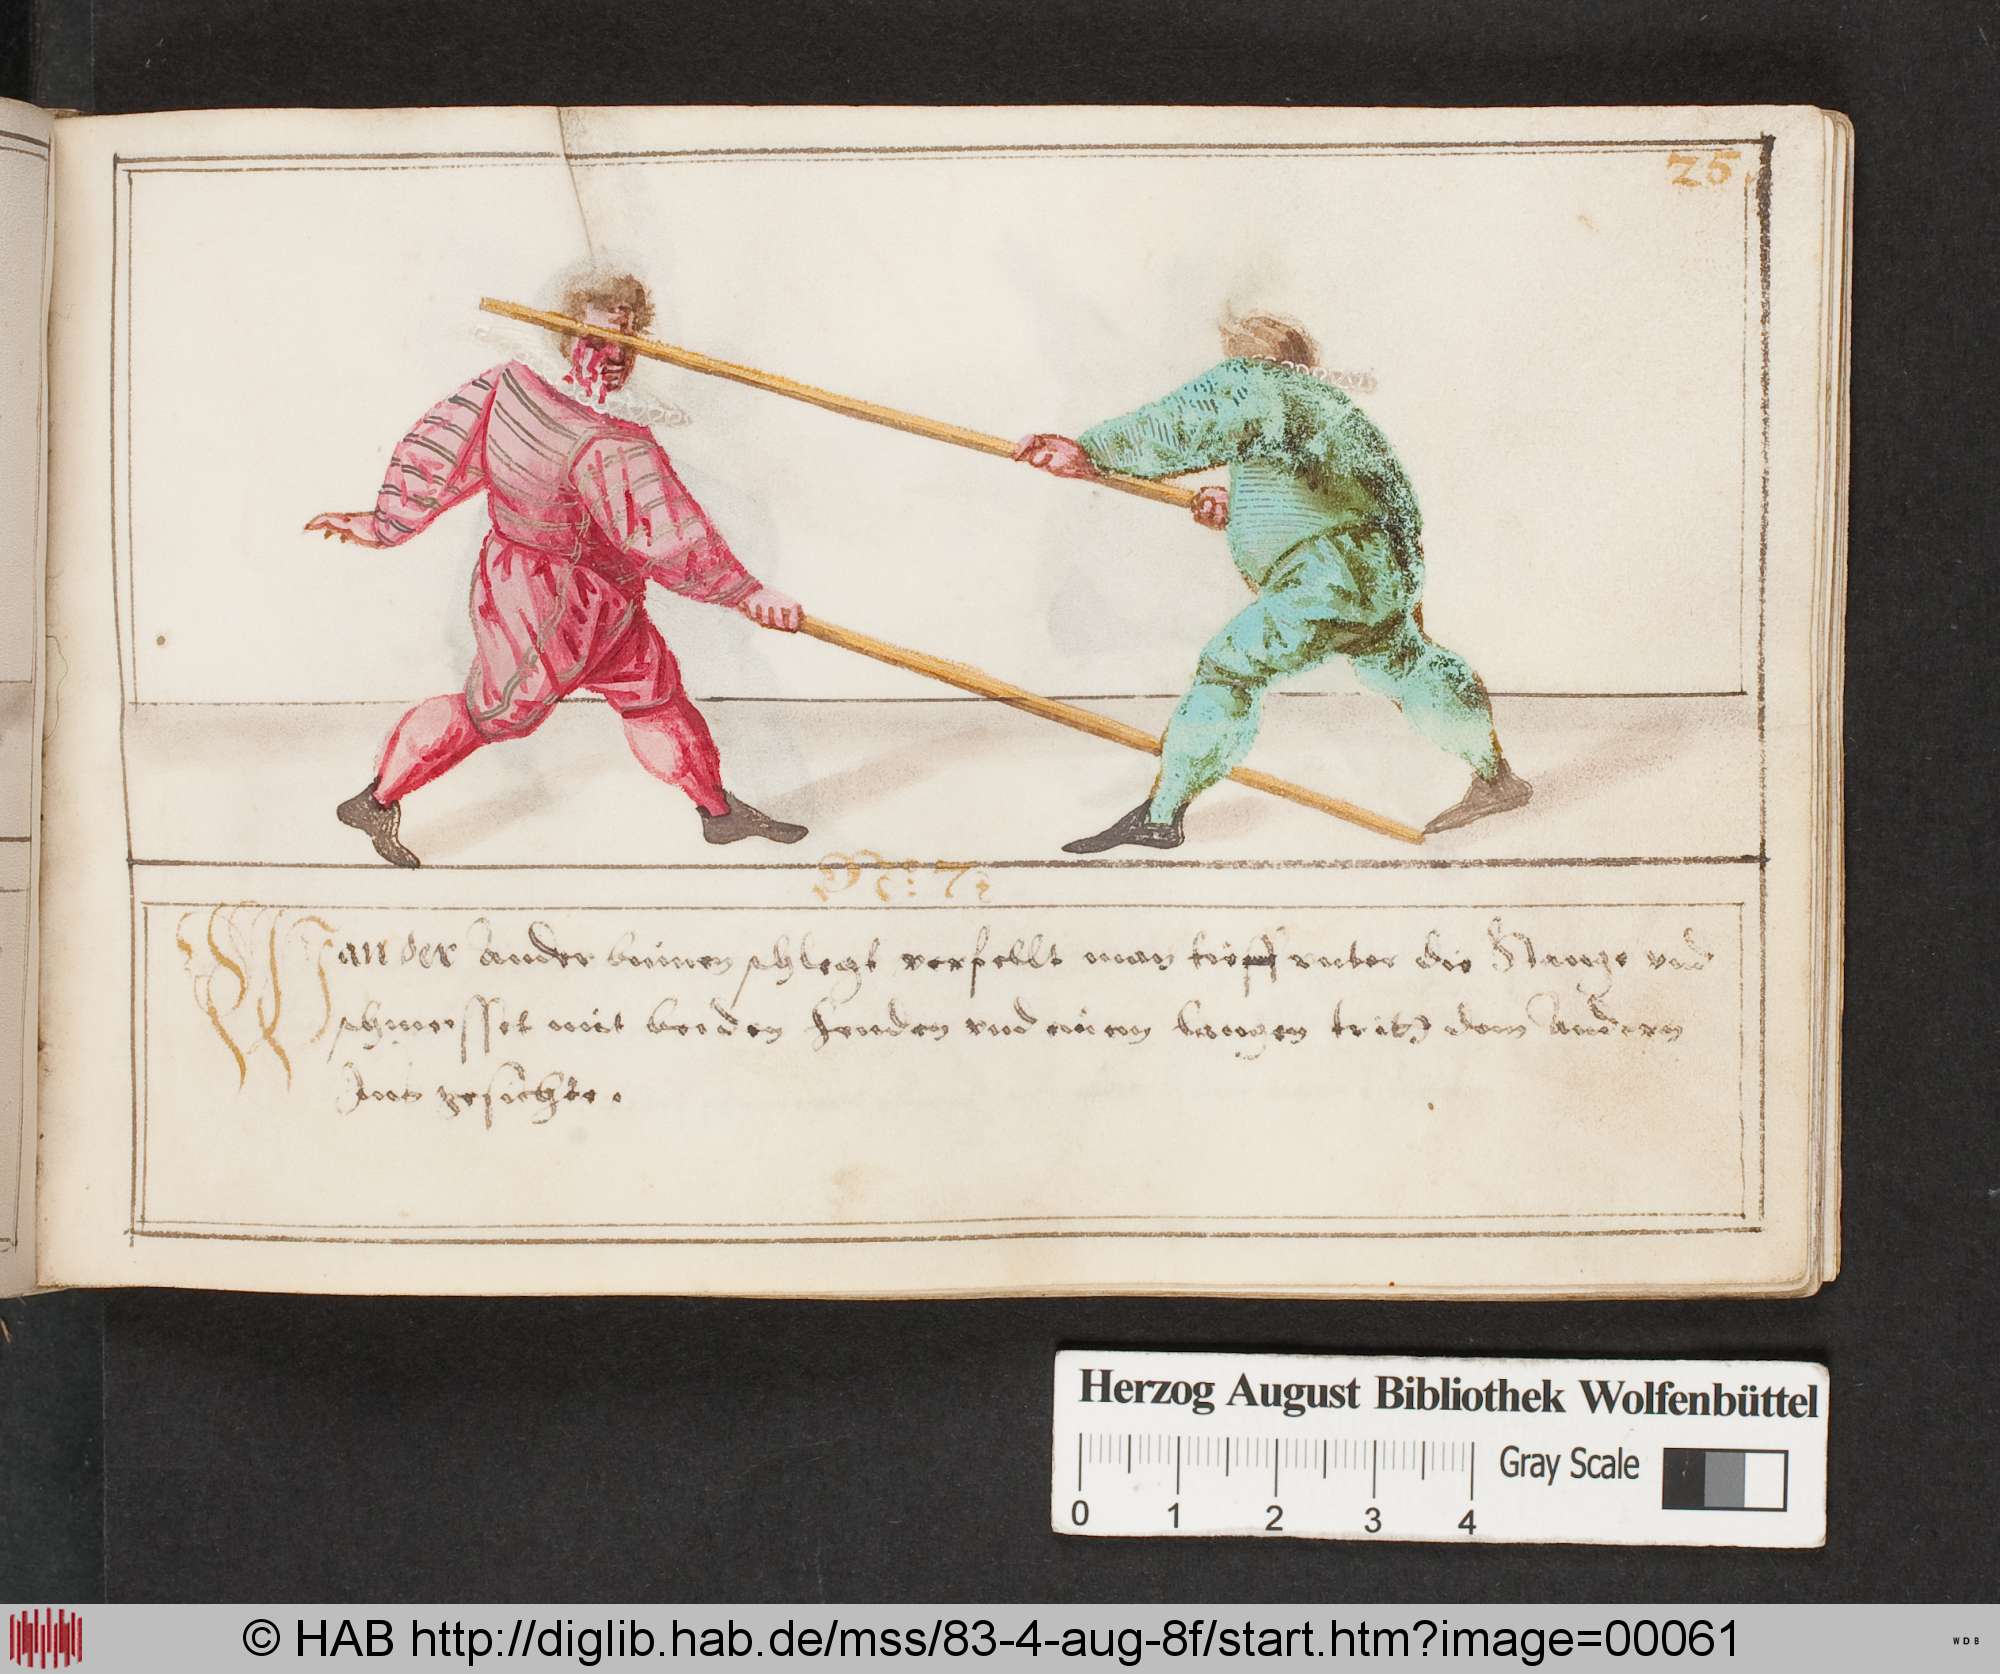 25.
Wan der Ander binnen schlegt verfellt man tieff vnter die Stange vnd
schmeisset mit beiden henden vnd einem langen tritt dem Andern
Ins gesichte.
Herzog August Bibliothek Wolfenbüttel
Gray Scale
0 1 2 3 4
© HAB http://diglib.hab.de/mss/83-4-aug-8f/start.htm?image=00061
WDB